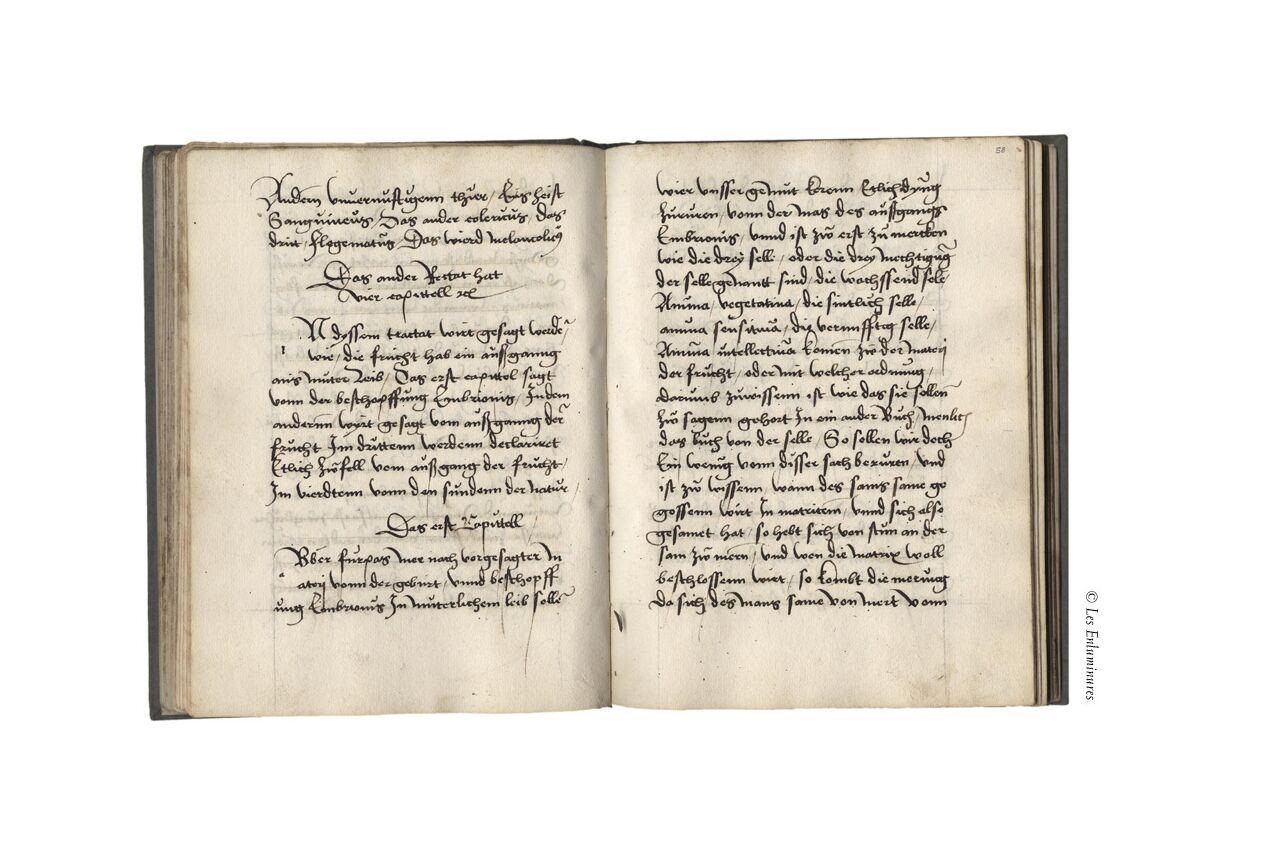 Andern vnuernustugenn thier / Eins heist
Sanguineus / Das ander colericus / das
drit / flegematus Das vierd melancolicus
Das ander Tractat hat
vier capittell
N dyssem tractat wirt gesagt werdē
wie / die frucht hab ein aussganng
aus muter leib / Das erst capittel sagt
vonn der beschopffung Embrionis / In dem
anderm wirt gesagt vom aussganng der
frucht Im drittenn werdenn declariret
Etlich zwfell vom aussgang der frucht /
Im vierdtenn vonn den sundenn der natur
Das erst Capittell
Aber furpas mer nach vorgesagter m
aterj vonn der geburt / vnnd beschopff
ung Embrionis In muterlichem leib sollē
58
wier vnsser gemut keren Etlich dyng
zururen / vonn der mas des aussganngs
Embrionis / vnnd ist zw erst zu mercken
wie die drey selle / oder die drey mechtigung
der selle genantt sind / die wachssend sele
Anima / vegetatiua / die sintlich selle /
anima sensitiua / die vernufftig selle /
Anima intellectiua komen zw der materj
der frucht / oder mit welcher ordnung /
darumb zuwissenn ist wie das sie sollen
zu sagenn gehort In ein ander Buch / nenlich
das buch von der selle / So sollen wir doch
Ein wenig vonn disser sach beruren / vnd
ist zw wissenn / wann des sams same ge
gossenn wirt In matricem / vnnd sich also
gesamet hat / so hebt sich von stun an der
sam zw mern / vnd wen die matrix woll
beschlossenn wirt / so kombt die merung
da sich des mans same von mert vonn
© Les Enluminures